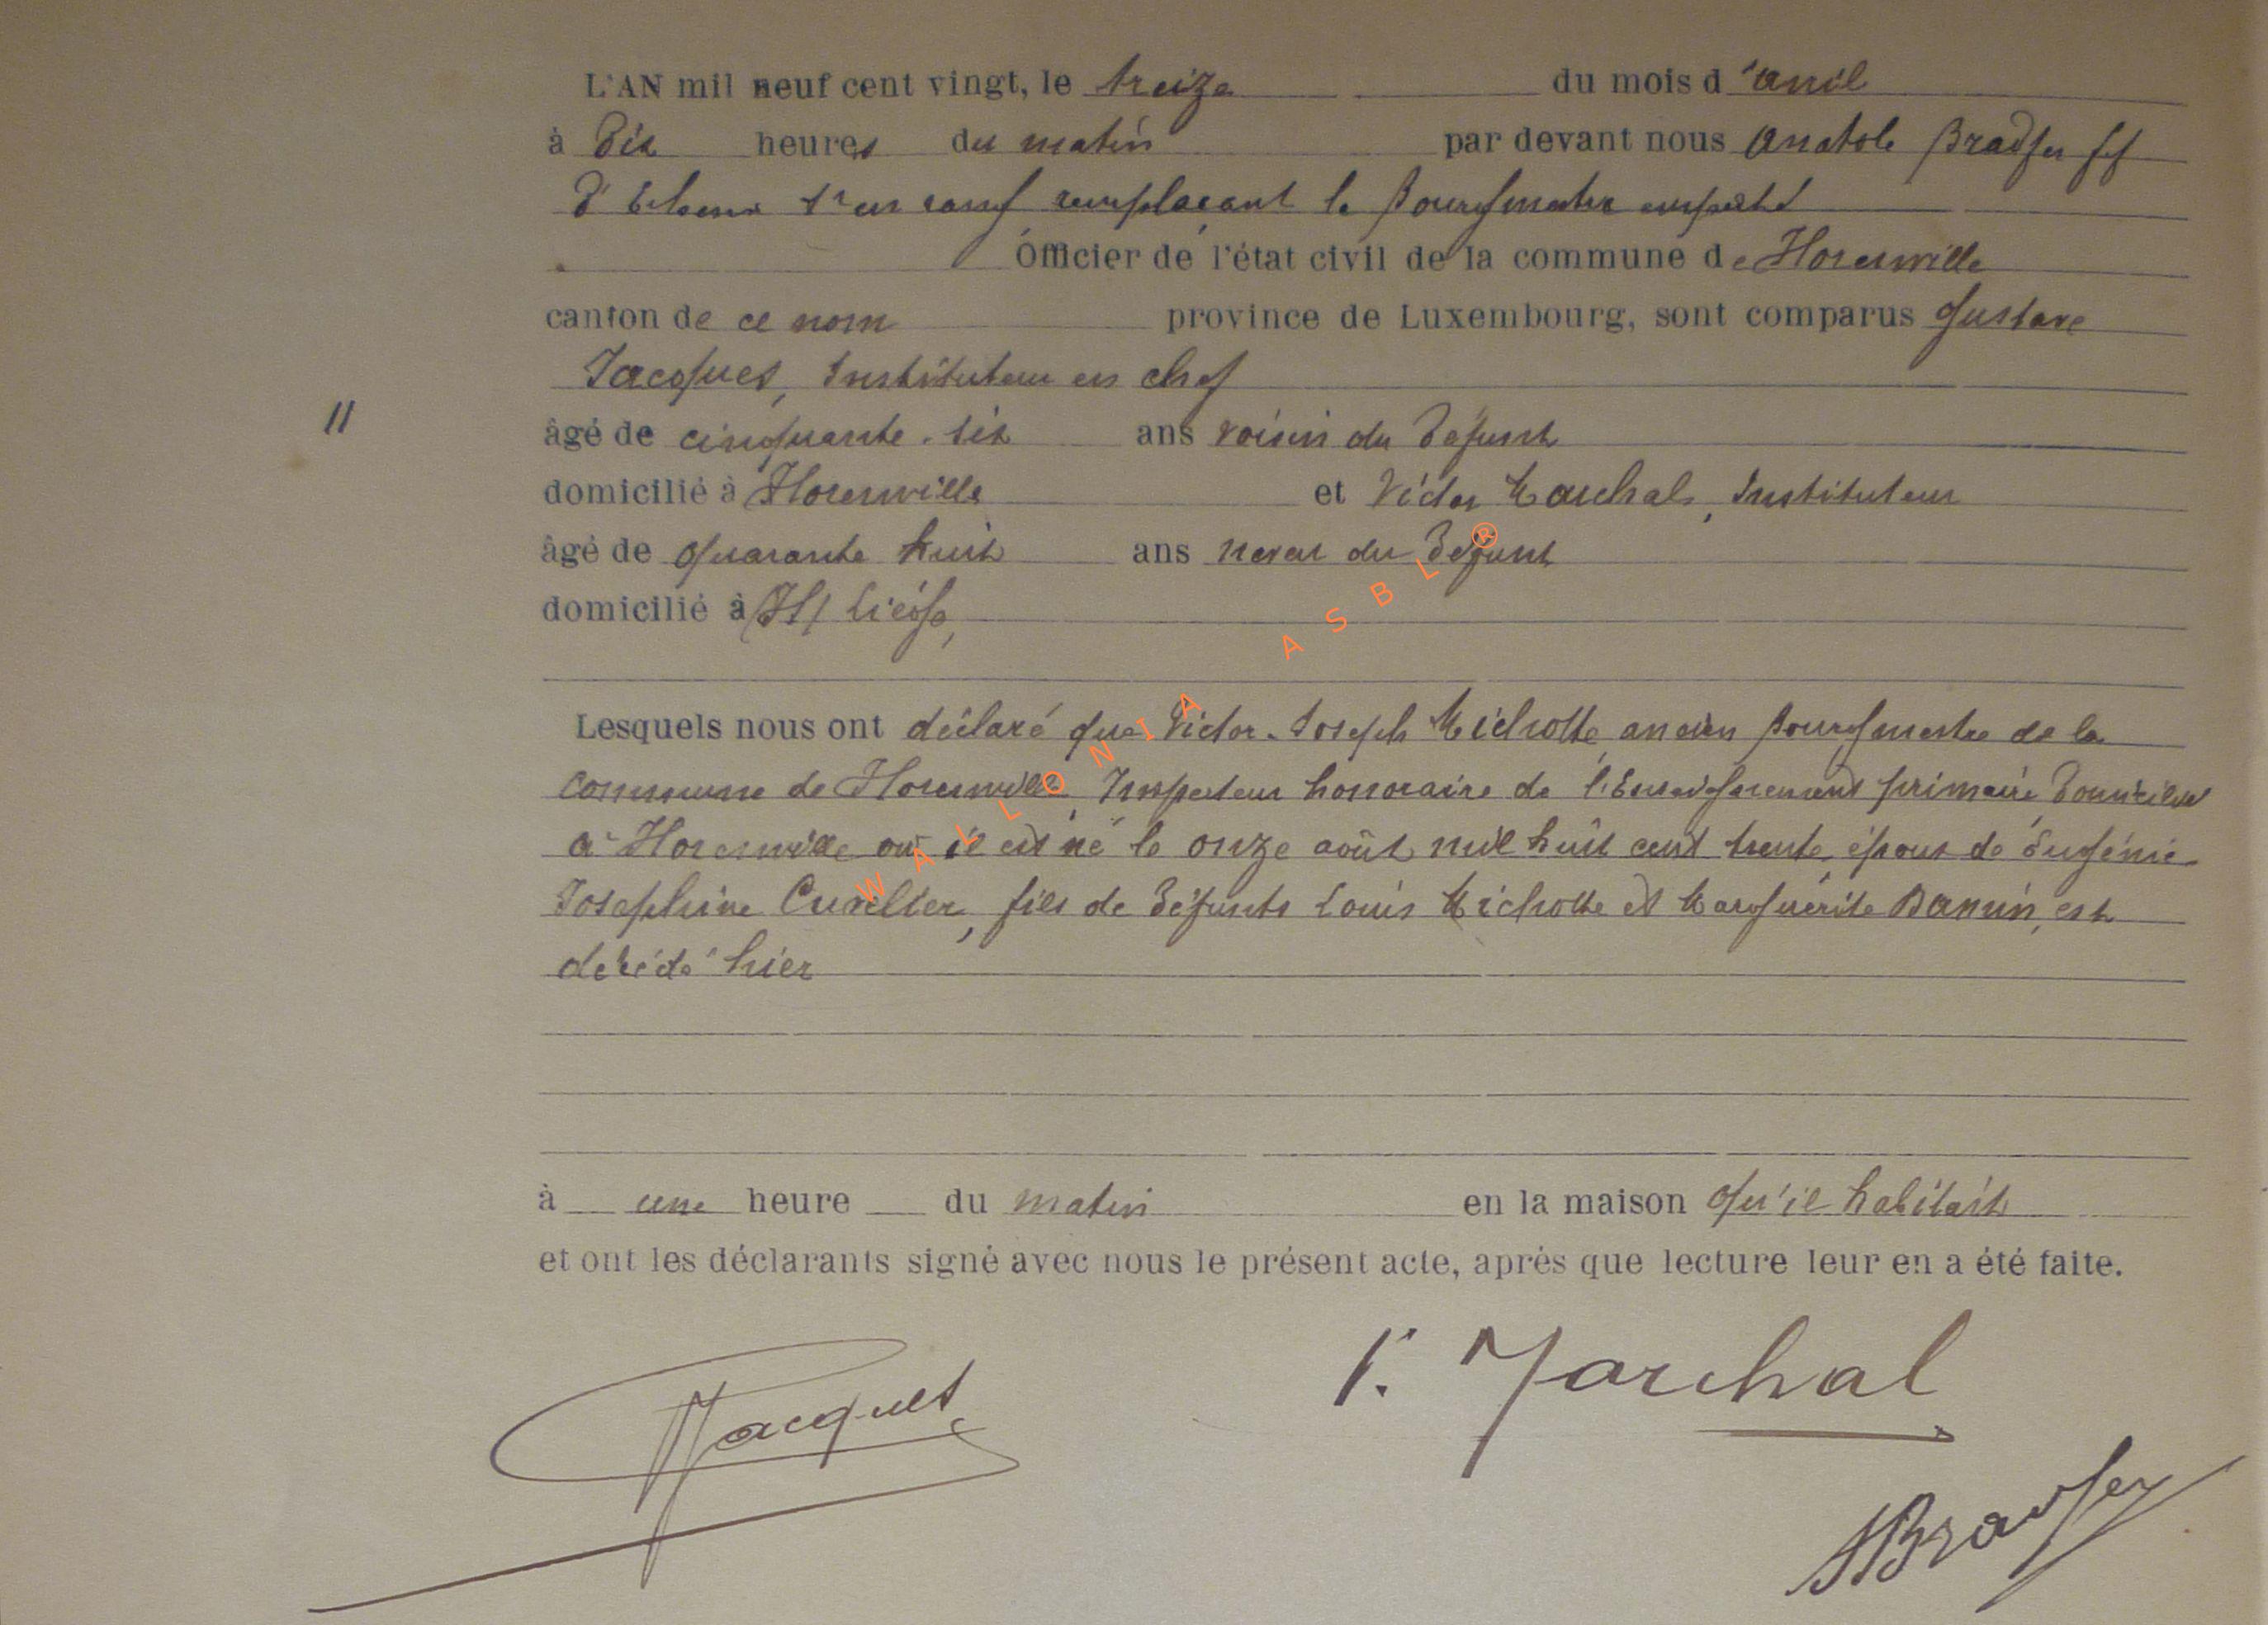 L'AN mil neuf cent vingt, le treize du mois d'avril
à dix heures du matin par devant nous Anatole Bradfer ff
d'Echevin 1er en rang remplaçant le Bourgmestre empêché
Officier de l'état civil de la commune de Florenville
canton de ce nom province de Luxembourg, sont comparus Gustave
Jacques, Instituteur en chef
11 âgé de cinquante-six ans voisin du défunt
domicilié à Florenville et Victor Marchal, Instituteur
âgé de quarante huit ans neveu du défunt
domicilié à Liége,
Lesquels nous ont déclaré que Victor-Joseph Michotte, ancien Bourgmestre de la
commune de Florenville, Inspecteur honoraire de l'Enseignement primaire, domicilié
à Florenville où il est né le onze août mil huit cent trente, époux de Eugénie
Joséphine Cuvelier, fils de défunts Louis Michotte et Marguérite Damin, est
décédé hier
à une heure du matin en la maison qu'il habitait
et ont les déclarants signé avec nous le présent acte, après que lecture leur en a été faite.
Jacques
V. Marchal
ABradfer
WALLONIA ASBL ®